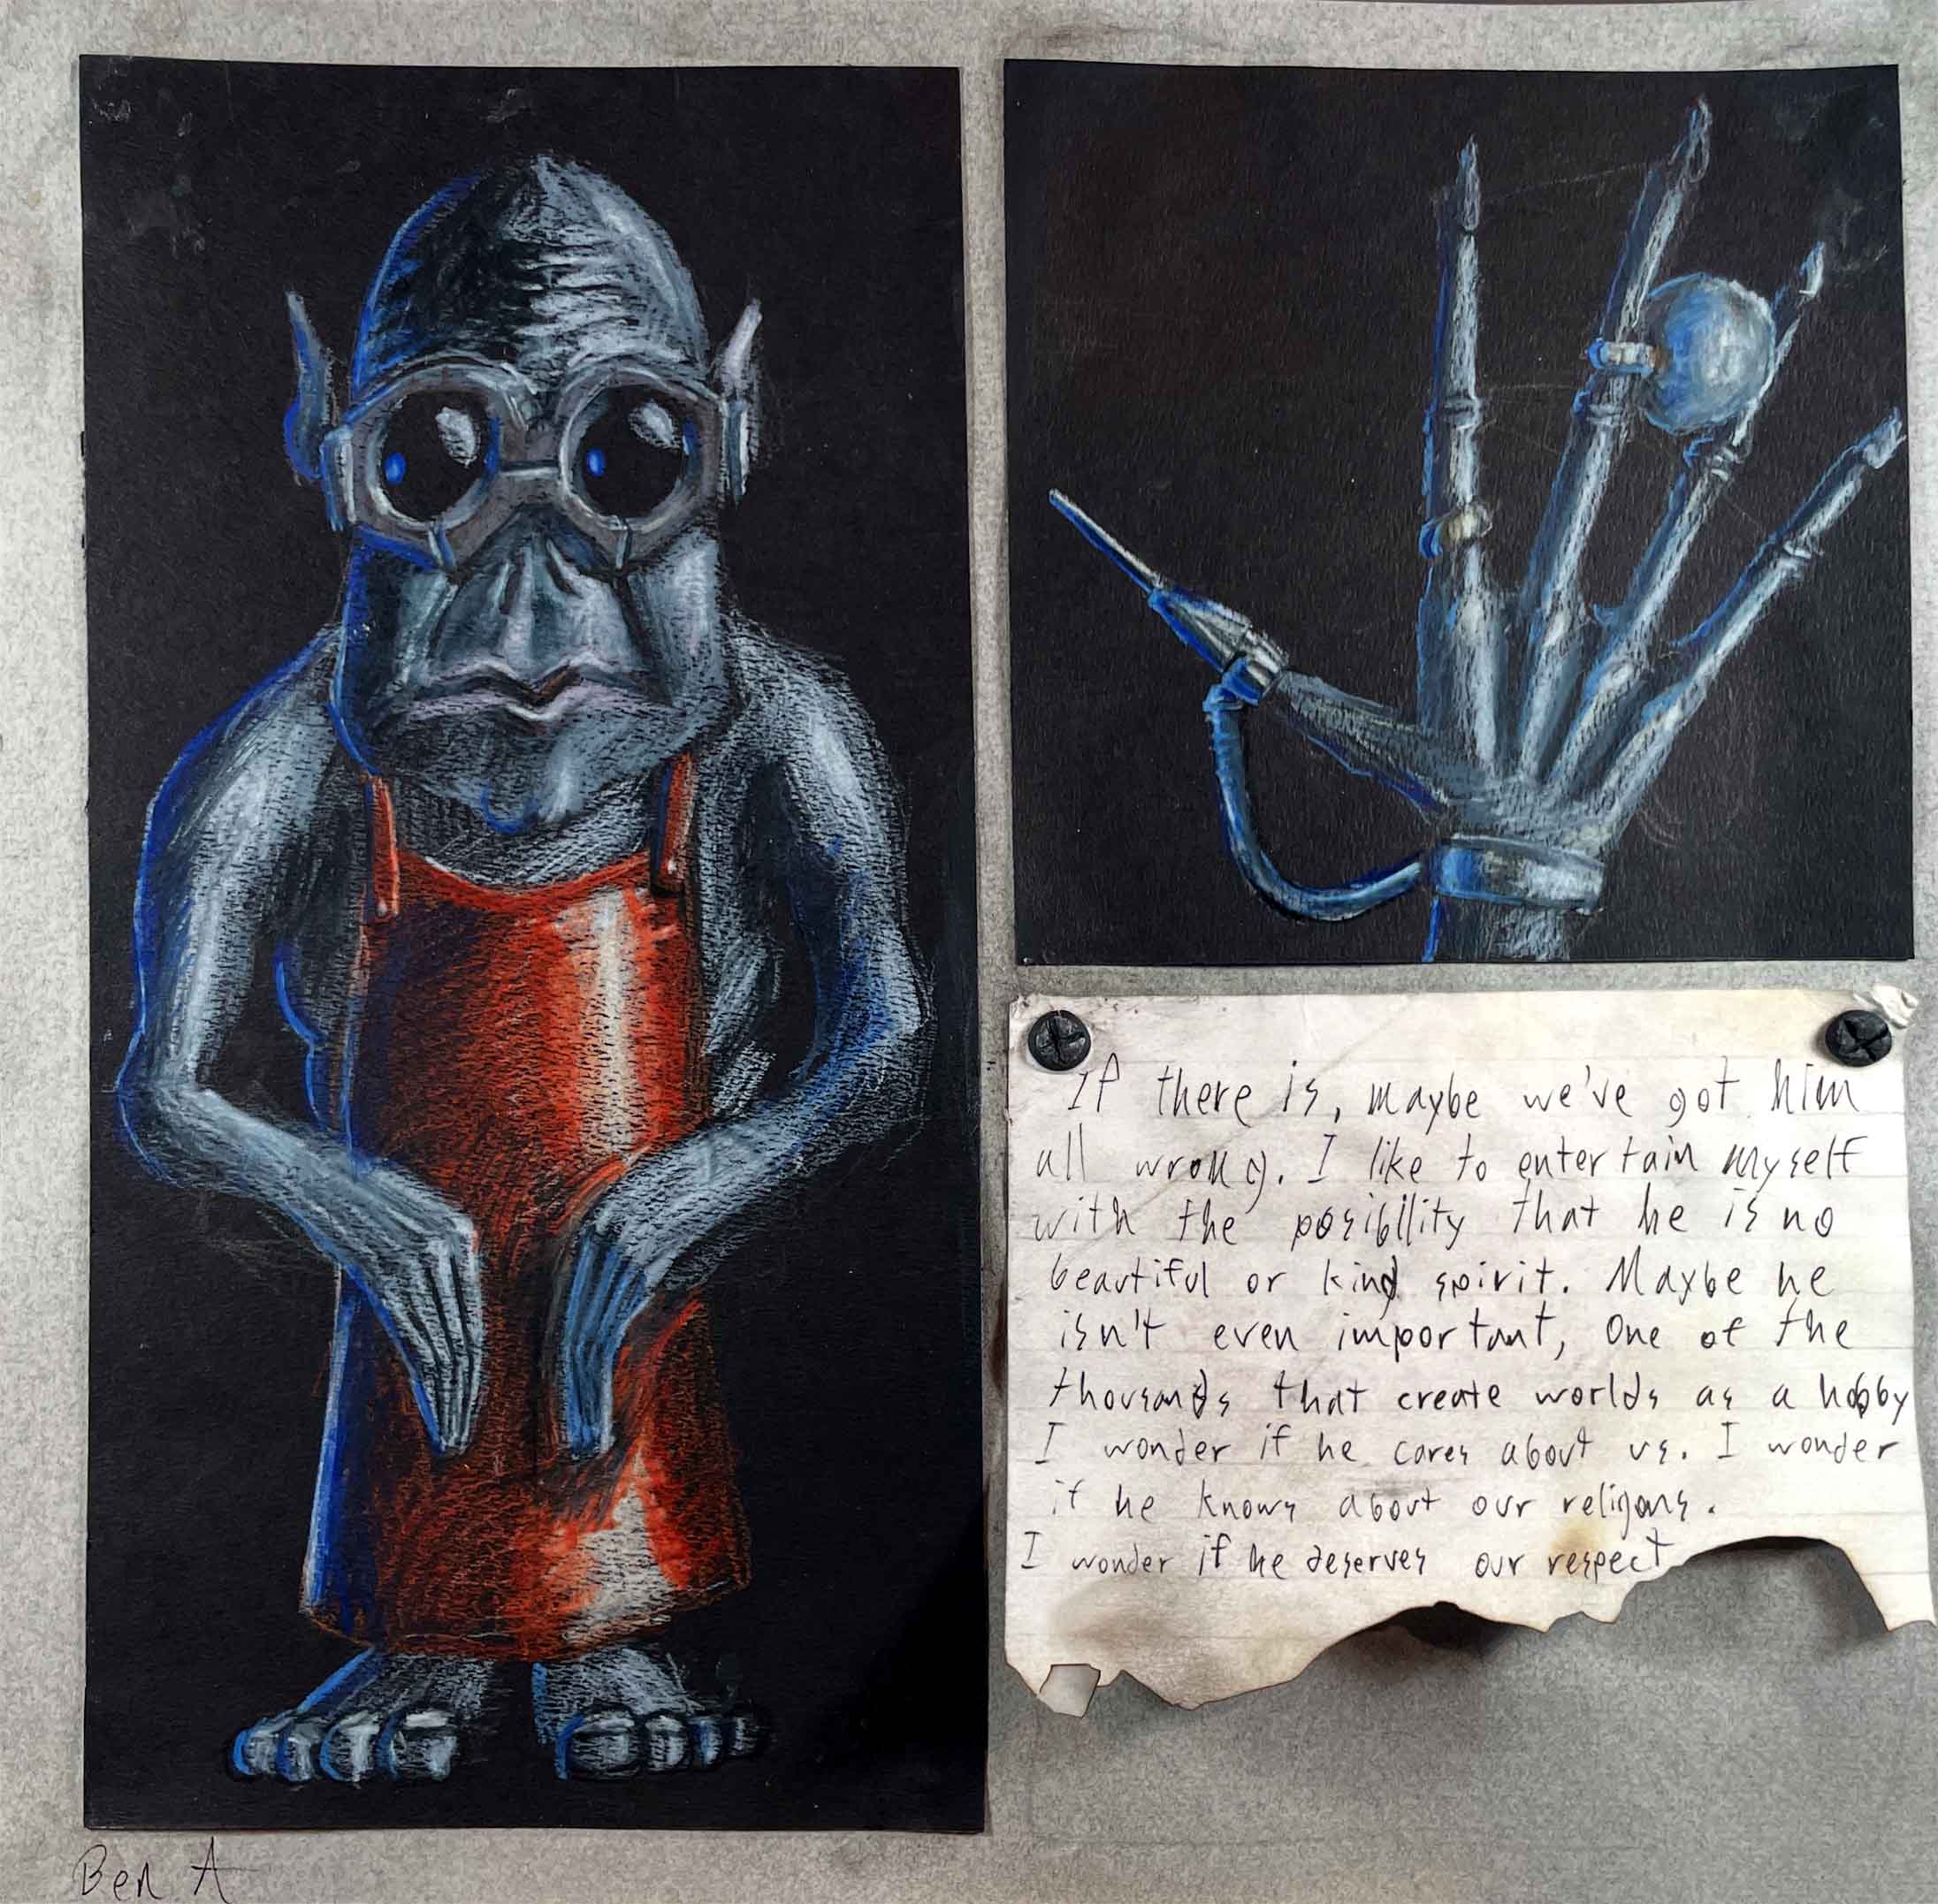 If there is, maybe we've got him
all wrong. I like to entertain myself
with the posibllity that he is no
beautiful or kind spirit. Maybe he
isn't even important, One of the
thousands that create worlds as a hobby
I wonder if he cares about us. I wonder
if he knows about our religons.
I wonder if he deserves our respect
Ben A